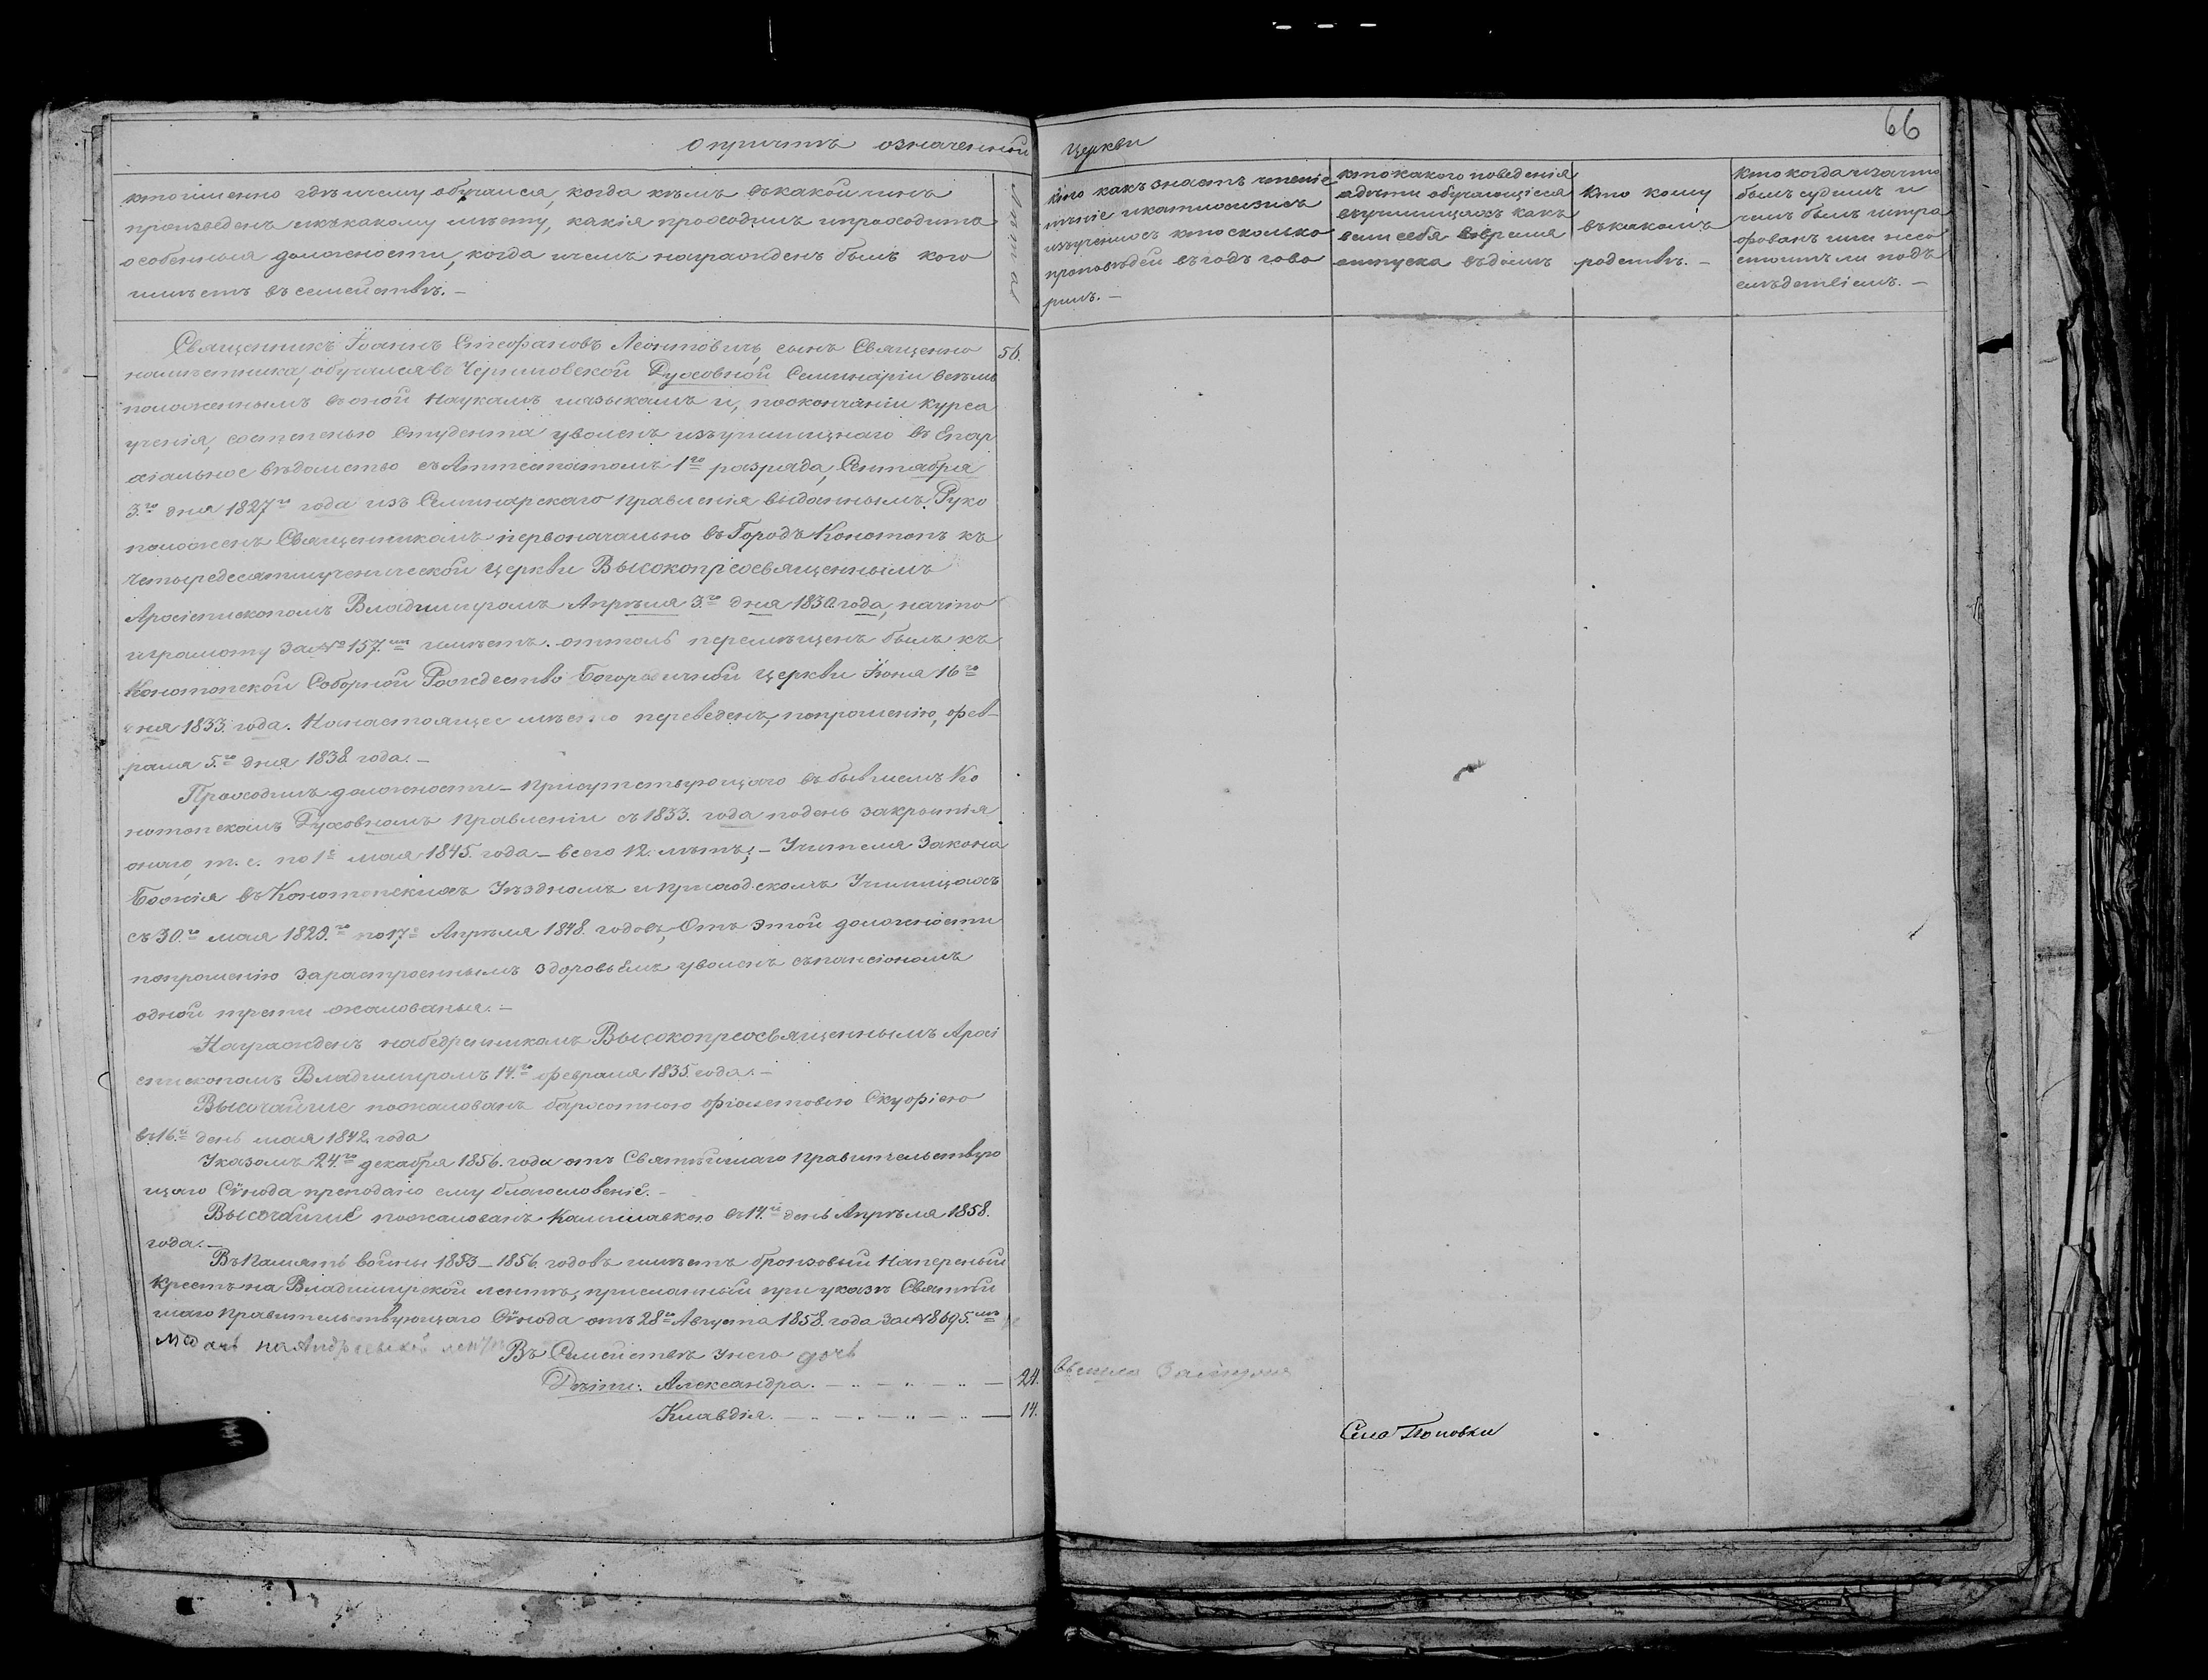 66
О причтѣ означенной Церкви
кто именно гдѣ и чему обучался, когда кѣмъ въ какой чинъ
произведенъ и къ какому мѣсту, какія проходилъ и проходитъ
особенныя должности, когда и чемъ награжденъ былъ кого
имѣетъ въ семействѣ. —
Лѣта
кто какъ знаетъ чтеніе
пѣніе и катихизисъ
изученіе кто сколько
проповѣдей въ годъ гово
рилъ. —
кто какого поведенія
а дѣти обучающіеся
въ училищахъ какъ
вели себя во время
отпуска въ домъ
Кто кому
въ какомъ
родствѣ. —
Кто когда и за что
былъ судимъ и
чемъ былъ штра
фованъ или не со
стоитъ ли подъ
слѣдствіемъ. —
Священникъ Іоаннъ Стефановъ Леонтовичъ, сынъ Священно 56.
намѣстника, обучался въ Черниговской Духовной Семинаріи всѣмъ
положеннымъ въ оной Наукамъ и языкамъ и, по окончаніи Курса
ученія, со степенью Студента уволенъ изъ училищнаго въ Епар
хіальное вѣдомство съ Аттестатомъ 1го разряда, Сентября
3.го дня 1827го года изъ Семинарскаго Правленія выданнымъ. Руко
положенъ Священникомъ первоначально въ Городъ Конотопъ къ
Четыредесятмученической Церкви Высокопреосвященнымъ
Архіепископомъ Владимиромъ Апрѣля 3.го дня 1830. года, на что
и грамоту за № 157.мъ имѣетъ. оттоль перемѣщенъ былъ къ
Конотопской Соборной Рождество Богородичной Церкви Іюня 16го
дня 1833. года. На настоящее мѣсто переведенъ, по прошенію, Фев-
раля 5.го дня 1838 года. —
Проходилъ должности — Присутствующаго въ бывшемъ Ко
нотопскомъ Духовномъ Правленіи съ 1833. года по день закрытія
онаго, т. е. по 1е мая 1845. года — всего 12. лѣтъ; — Учителя Закона
Божія въ Конотопскихъ Уѣздномъ и Приходскомъ Училищахъ
съ 30.го мая 1829.го по 17е Апрѣля 1848. годовъ, Отъ этой должности
по прошенію за разстроеннымъ здоровьемъ уволенъ съ пансіономъ
одной трети жалованья. —
Награжденъ набедренникомъ Высокопреосвященнымъ Архі
епископомъ Владимиромъ 14.го февраля 1835. года. —
Высочайше пожалованъ бархатною фіолетовою Скуфіею
въ 16.й день мая 1842. года
Указомъ 24.го декабря 1856. года отъ Святѣйшаго Правительствую
щаго Сѵнода преподано ему благословеніе. —
Высочайше пожалованъ Камилавкою въ 14.й день Апрѣля 1858.
года. —
Въ Память войны 1853 — 1856 годовъ имѣетъ бронзовый Наперсный
Крестъ на Владимирской лентѣ, присланный при указѣ Святѣй
шаго Правительствующаго Сѵнода отъ 28го Августа 1858. года за № 8695.мъ
Медаль на Андреевской лентѣ
Въ Семействѣ у него дочь
Дѣти: Александра. — 24.
Клавдія. — 14.
Села Поповки